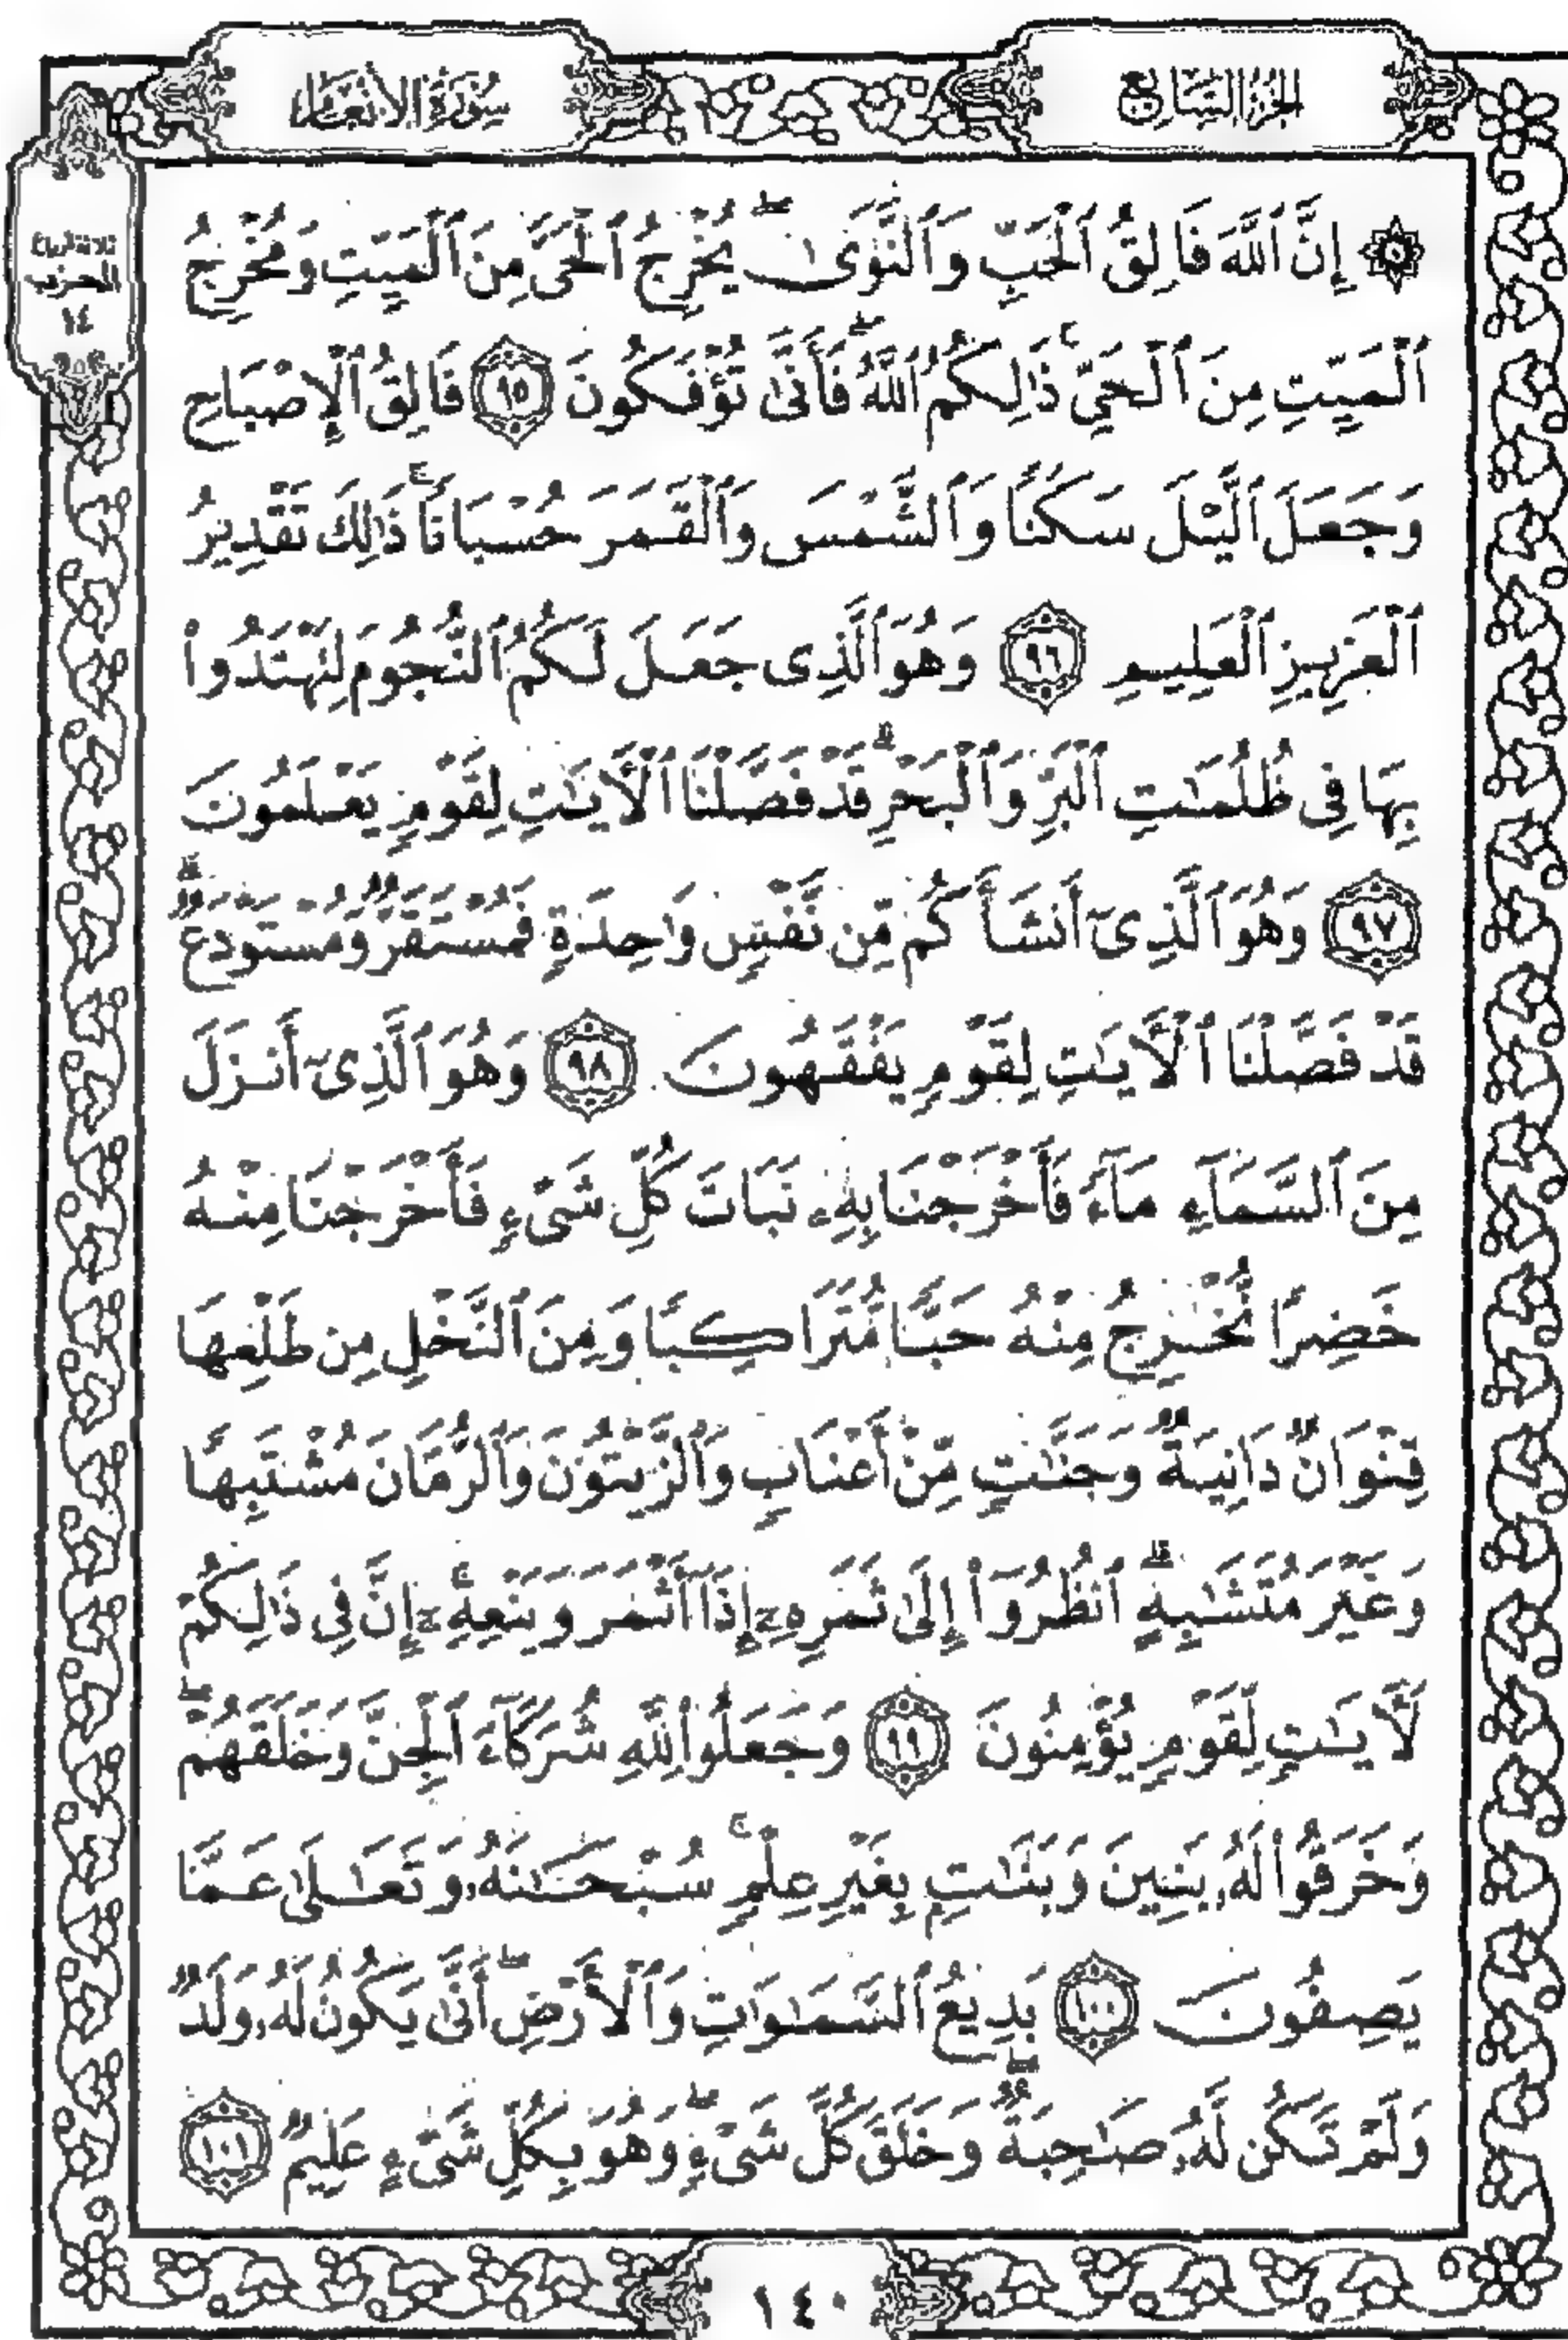 الجزء السابع
سورة الأنعام
ثلاثة أرباع
الحزب
١٤
۞ إِنَّ ٱللَّهَ فَالِقُ ٱلْحَبِّ وَٱلنَّوَىٰ ۖ يُخْرِجُ ٱلْحَىَّ مِنَ ٱلْمَيِّتِ وَمُخْرِجُ
ٱلْمَيِّتِ مِنَ ٱلْحَىِّ ۚ ذَٰلِكُمُ ٱللَّهُ ۖ فَأَنَّىٰ تُؤْفَكُونَ ٩٥ فَالِقُ ٱلْإِصْبَاحِ
وَجَعَلَ ٱلَّيْلَ سَكَنًا وَٱلشَّمْسَ وَٱلْقَمَرَ حُسْبَانًا ۚ ذَٰلِكَ تَقْدِيرُ
ٱلْعَزِيزِ ٱلْعَلِيمِ ٩٦ وَهُوَ ٱلَّذِى جَعَلَ لَكُمُ ٱلنُّجُومَ لِتَهْتَدُوا۟
بِهَا فِى ظُلُمَـٰتِ ٱلْبَرِّ وَٱلْبَحْرِ ۗ قَدْ فَصَّلْنَا ٱلْـَٔايَـٰتِ لِقَوْمٍ يَعْلَمُونَ
٩٧ وَهُوَ ٱلَّذِىٓ أَنشَأَكُم مِّن نَّفْسٍ وَٰحِدَةٍ فَمُسْتَقَرٌّ وَمُسْتَوْدَعٌ ۗ
قَدْ فَصَّلْنَا ٱلْـَٔايَـٰتِ لِقَوْمٍ يَفْقَهُونَ ٩٨ وَهُوَ ٱلَّذِىٓ أَنزَلَ
مِنَ ٱلسَّمَآءِ مَآءً فَأَخْرَجْنَا بِهِۦ نَبَاتَ كُلِّ شَىْءٍ فَأَخْرَجْنَا مِنْهُ
خَضِرًا نُّخْرِجُ مِنْهُ حَبًّا مُّتَرَاكِبًا وَمِنَ ٱلنَّخْلِ مِن طَلْعِهَا
قِنْوَانٌ دَانِيَةٌ وَجَنَّـٰتٍ مِّنْ أَعْنَابٍ وَٱلزَّيْتُونَ وَٱلرُّمَّانَ مُشْتَبِهًا
وَغَيْرَ مُتَشَـٰبِهٍ ۗ ٱنظُرُوٓا۟ إِلَىٰ ثَمَرِهِۦٓ إِذَآ أَثْمَرَ وَيَنْعِهِۦٓ ۚ إِنَّ فِى ذَٰلِكُمْ
لَـَٔايَـٰتٍ لِّقَوْمٍ يُؤْمِنُونَ ٩٩ وَجَعَلُوا۟ لِلَّهِ شُرَكَآءَ ٱلْجِنَّ وَخَلَقَهُمْ ۖ
وَخَرَقُوا۟ لَهُۥ بَنِينَ وَبَنَـٰتٍۭ بِغَيْرِ عِلْمٍ ۚ سُبْحَـٰنَهُۥ وَتَعَـٰلَىٰ عَمَّا
يَصِفُونَ ١٠٠ بَدِيعُ ٱلسَّمَـٰوَٰتِ وَٱلْأَرْضِ ۖ أَنَّىٰ يَكُونُ لَهُۥ وَلَدٌ
وَلَمْ تَكُن لَّهُۥ صَـٰحِبَةٌ ۖ وَخَلَقَ كُلَّ شَىْءٍ ۖ وَهُوَ بِكُلِّ شَىْءٍ عَلِيمٌ ١٠١
١٤٠